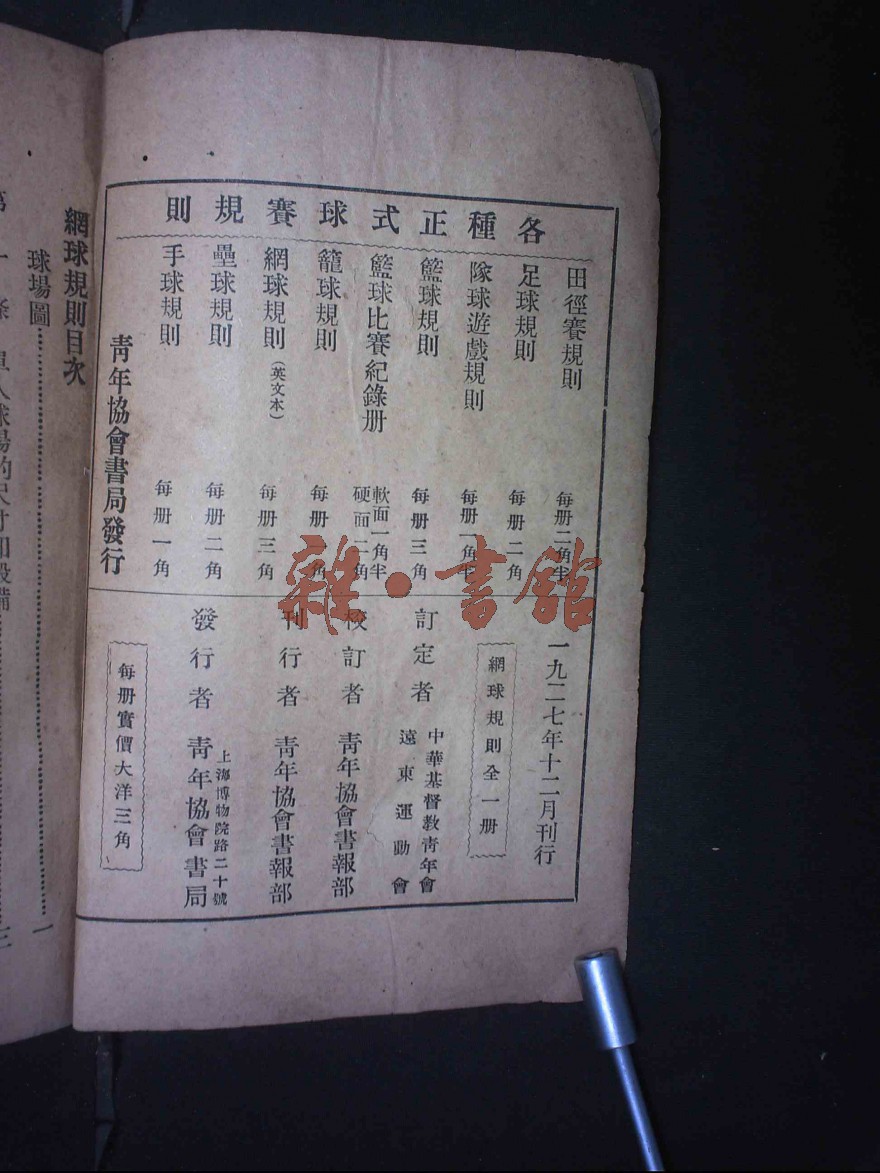 各種正式球賽規則
田徑賽規則 每册二角半
足球規則 每册二角
隊球遊戲規則 每册一角半
籃球規則 每册三角
籃球比賽紀錄册 軟面一角半 硬面二角
籠球規則 每册一角
網球規則（英文本） 每册三角
壘球規則 每册二角
手球規則 每册一角
青年協會書局發行
一九二七年十二月刊行
網球規則全一册
訂定者 中華基督教青年會
遠東運動會
校訂者 青年協會書報部
刊行者 青年協會書報部
發行者 上海博物院路二十號
青年協會書局
每册實價大洋三角
網球規則目次
球場圖 一
雜·書館